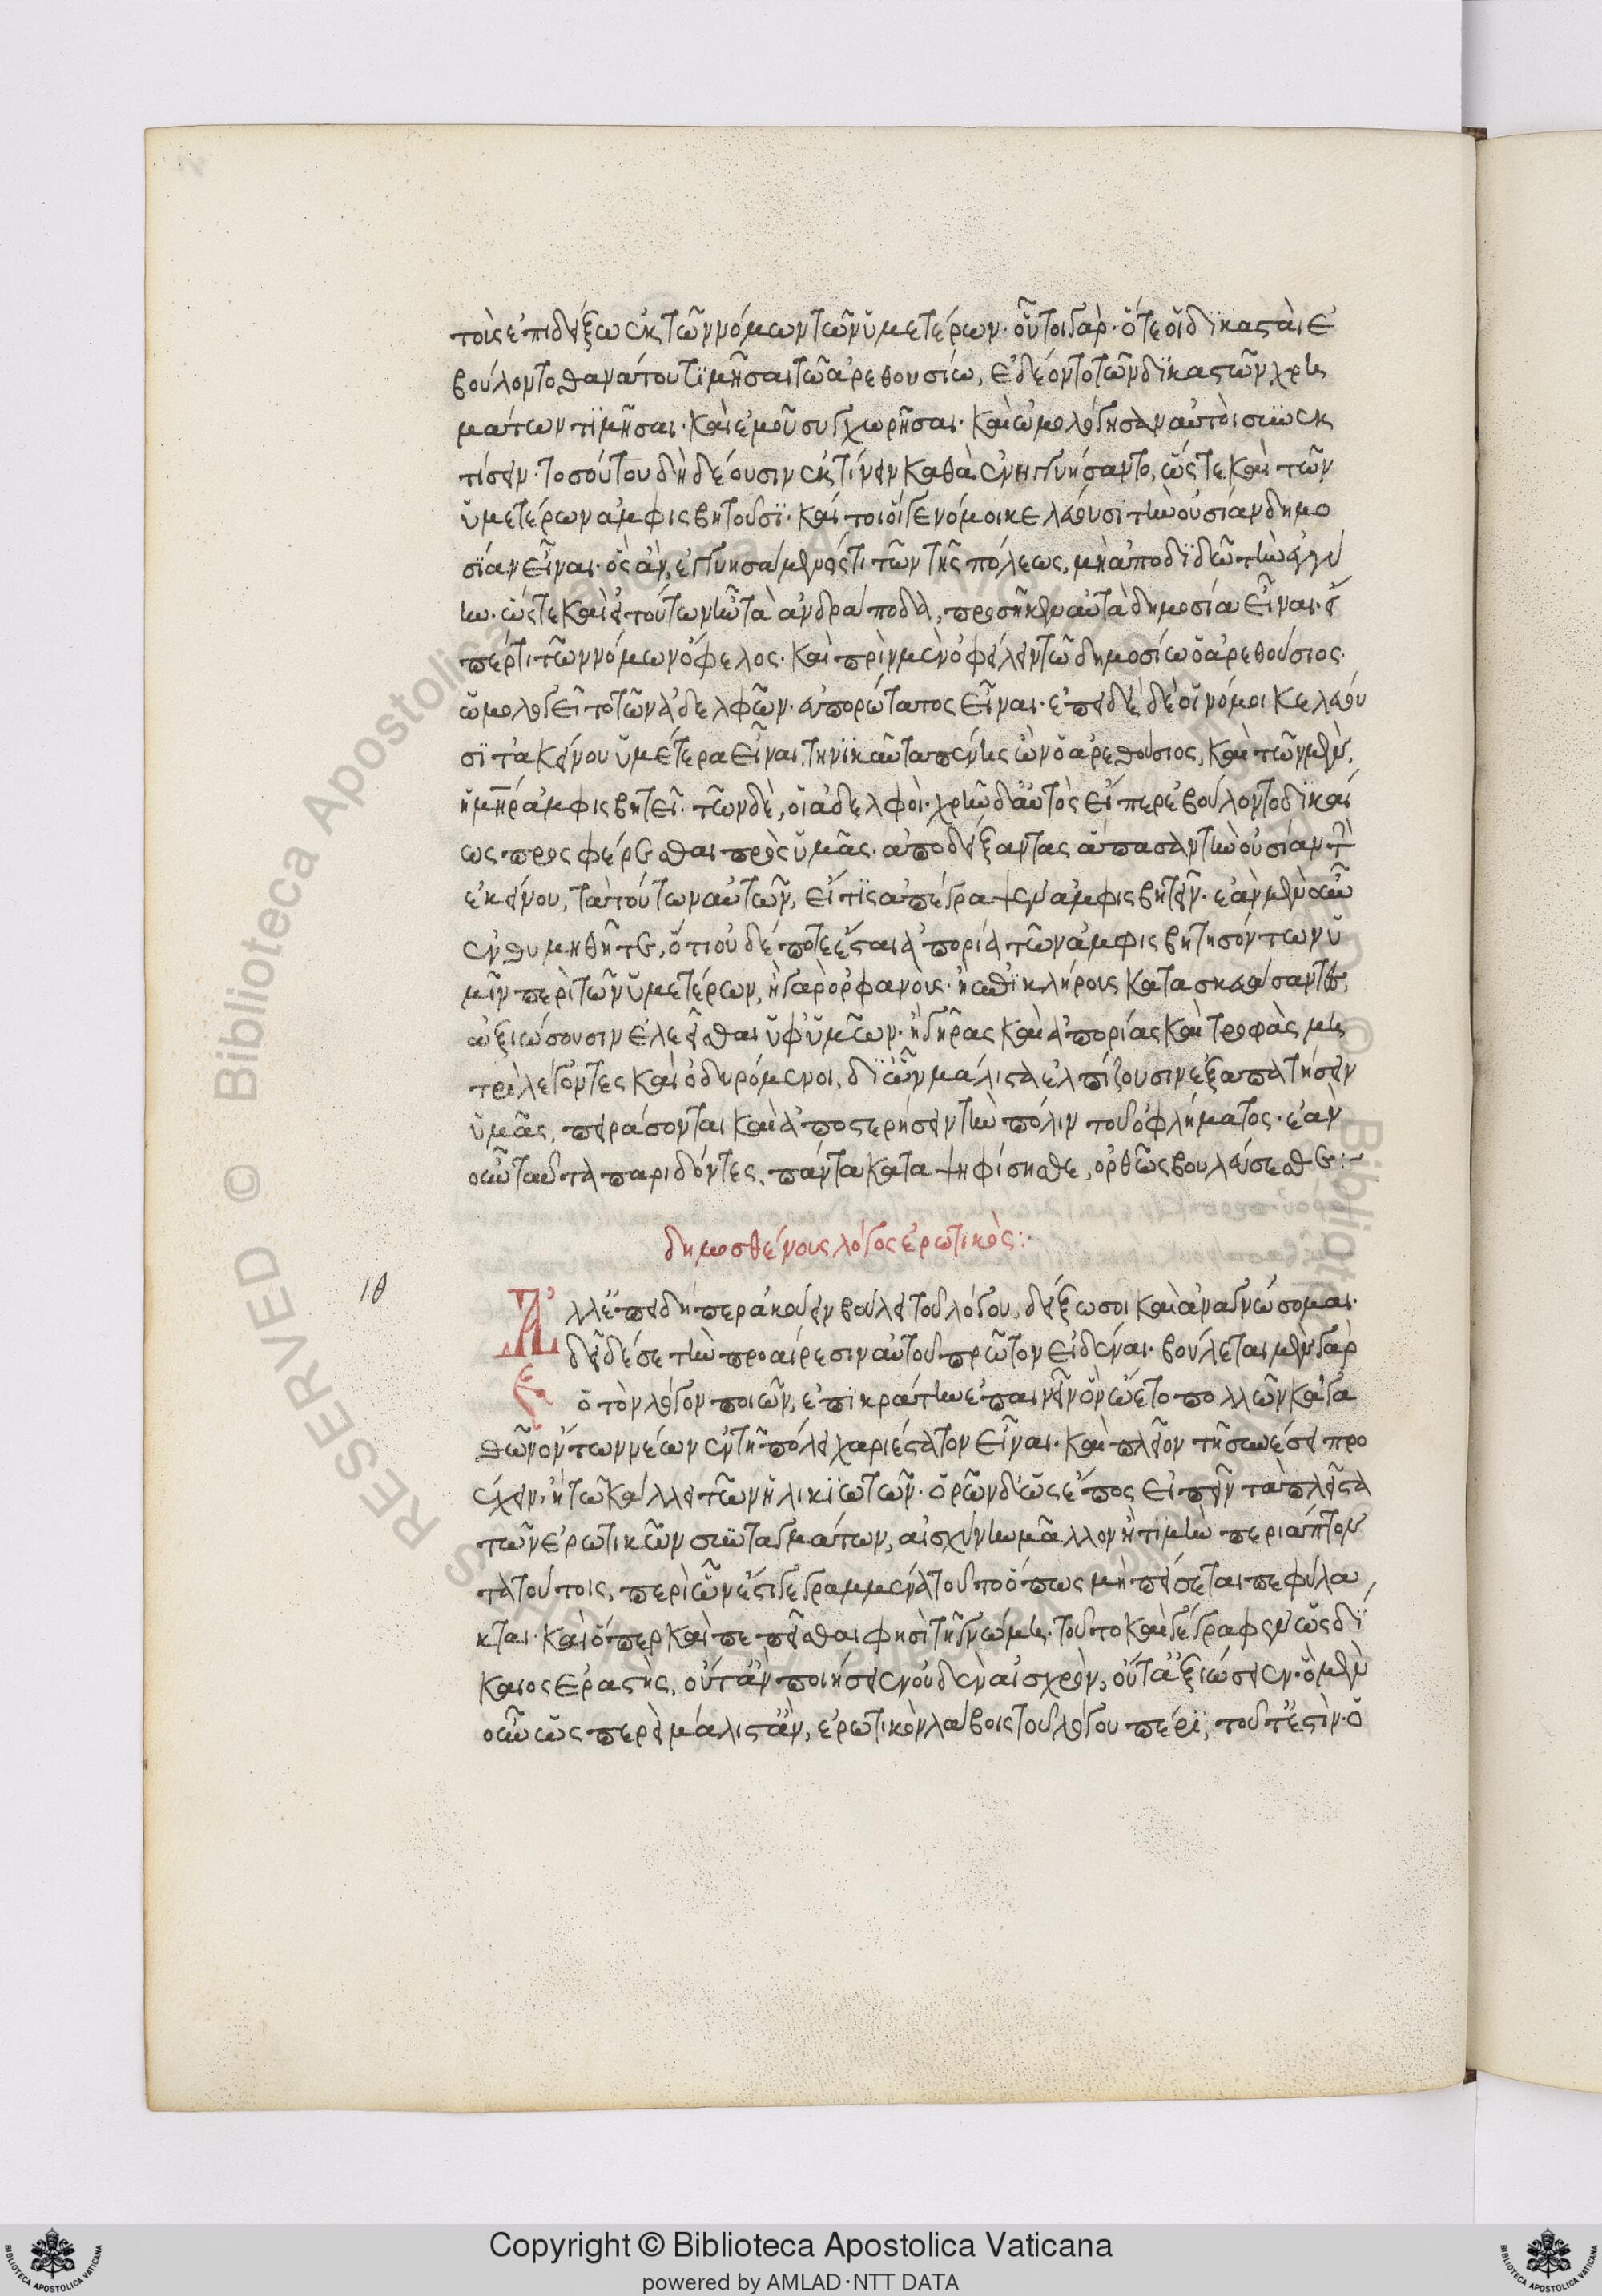 τοὺς ἐπιδείξω ἐκ τῶν νόμων τῶν ὑμετέρων· οὗτοι γὰρ· ὅτε οἱ δικασταὶ ἐ
βούλοντο θανάτου τιμῆσαι τῶ ἀρεθουσίω, ἐδέοντο τῶν δικαστῶν χρη
μάτων τιμῆσαι· καὶ ἐμοῦ συγχωρῆσαι· καὶ ὡμολόγησαν αὐτοὶ συνεκ
τίσειν· τοσούτου δὴ δέουσιν ἐκτίνειν καθὰ ἐνηγγυήσαντο, ὥστε καὶ τῶν
ὑμετέρων ἀμφισβητοῦσι· καί τοι οἵ γε νόμοι κελεύουσι τὴν οὐσίαν δημο
σίαν εἶναι· ὃς ἂν, ἐγγυησάμενός τι τῶν τῆς πόλεως, μὴ ἀποδιδῶ τὴν ἐγγύ
ην· ὥστε καὶ εἰ τούτων ἦν τὰ ἀνδράποδα, προσῆκεν αὐτὰ δημοσία εἶναι· εἴ
πέρ τι τῶν νόμων ὄφελος· καὶ πρὶν μὲν ὀφείλειν τῶ δημοσίω ὁ ἀρεθούσιος·
ὡμολογεῖτο τῶν ἀδελφῶν· εὐπορώτατος εἶναι· ἐπειδὴ δὲ οἱ νόμοι κελεύου
σι τἀκείνου ὑμέτερα εἶναι, τηνικαῦτα πένης ὢν ὁ ἀρεθούσιος, καὶ τῶν μὲν,
ἡ μήτηρ ἀμφισβητεῖ· τῶν δὲ, οἱ ἀδελφοί· χρῆν δ' αὐτοὺς εἴπερ ἐβούλοντο δικαί
ως προσφέρεσθαι πρὸς ὑμᾶς· ἀποδείξαντας ἅπασαν τὴν οὐσίαν τὴν
ἐκείνου, τὰ τούτων αὐτῶν, εἴ τις ἀπέγραψεν ἀμφισβητεῖν· ἐὰν μὲν οὖν
ἐνθυμηθῆτε, ὅτι οὐδέποτε ἔσται ἀπορία τῶν ἀμφισβητησόντων ὑ
μῖν περὶ τῶν ὑμετέρων, ἢ γὰρ ὀρφανοὺς· ἢ ἐπικλήρους κατασκευάσαντες,
ἀξιώσουσιν ἐλεεῖσθαι ὑφ' ὑμῶν· ἢ γῆρας καὶ ἀπορίας καὶ τροφὰς μη
τρὶ λέγοντες καὶ ὀδυρόμενοι, δι' ὧν μάλιστα ἐλπίζουσιν ἐξαπατήσειν
ὑμᾶς, πειράσονται καὶ ἀποστερήσειν τὴν πόλιν τοῦ ὀφλήματος· ἐὰν
οὖν ταῦτα παριδόντες, πάντα καταψηφίσησθε, ὀρθῶς βουλεύσεσθε:~
δημοσθένους λόγος ἐρωτικός:·
ιθ
Ἀλλ' ἐπειδήπερ ἀκούειν βούλει τοῦ λόγου, δείξω σοι καὶ ἀναγνώσομαι·
δεῖ δέ σε τὴν προαίρεσιν αὐτοῦ πρῶτον εἰδέναι· βούλεται μὲν γὰρ
ὁ τὸν λόγον ποιῶν, ἐπικράτην ἐπαινεῖν ὃν ᾤετο πολλῶν κἀγα
θῶν ὄντων νέων ἐν τῆ πόλει χαριέστατον εἶναι· καὶ πλεῖον τῆ συνέσει προ
έχειν, ἢ τῶ κάλλει τῶν ἡλικιωτῶν· ὁρῶν δ' ὡς ἔπος εἰπεῖν τὰ πλεῖστα
τῶν ἐρωτικῶν συνταγμάτων, αἰσχύνην μᾶλλον ἢ τιμὴν περιάπτον
τα τούτοις, περὶ ὧν ἐστι γεγραμμένα τοῦτο ὅπως μὴ πείσεται πεφύλα
κται· καὶ ὅπερ καὶ πεπεῖσθαι φησὶ τῆ γνώμη· τοῦτο καὶ γέγραφεν ὡς δί
καιος ἐραστὴς, οὔτ' ἂν ποιήσειεν οὐδὲν αἰσχρὸν, οὔτ' ἀξιώσειεν· ὃ μὲν
οὖν ὥσπερεὶ μάλιστ' ἂν, ἐρωτικὸν λάβοις τοῦ λόγου πέρι, τοῦτ' ἐστὶν· ὁ
Copyright © Biblioteca Apostolica Vaticana
powered by AMLAD·NTT DATA